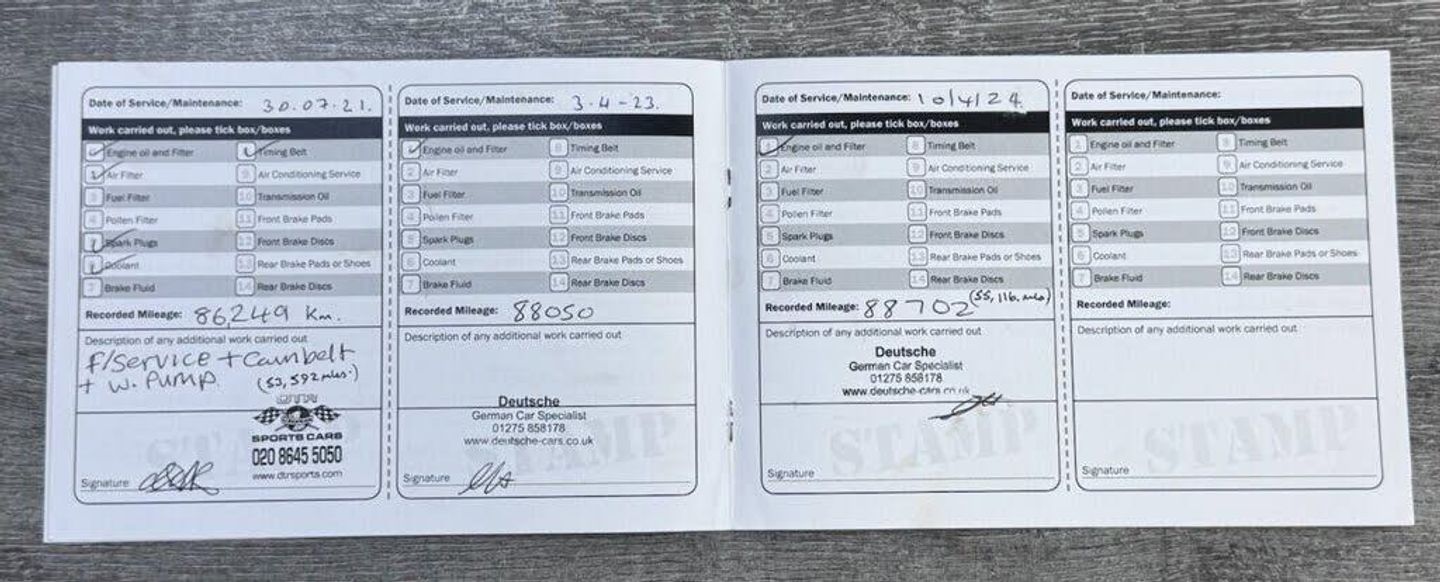 Date of Service/Maintenance: 30.07.21.
Work carried out, please tick box/boxes
Engine oil and Filter Timing Belt
Air Filter 9 Air Conditioning Service
3 Fuel Filter 10 Transmission Oil
4 Pollen Filter 11 Front Brake Pads
Spark Plugs 12 Front Brake Discs
Coolant 13 Rear Brake Pads or Shoes
7 Brake Fluid 14 Rear Brake Discs
Recorded Mileage: 86,249 Km.
Description of any additional work carried out
F/SERVICE + Cambelt
+ W. PUMP. (53,592 miles.)
SPORTS CARS
020 8645 5050
www.dtrsports.com
STAMP
Signature
Date of Service/Maintenance: 3-4-23.
Work carried out, please tick box/boxes
Engine oil and Filter 8 Timing Belt
2 Air Filter 9 Air Conditioning Service
3 Fuel Filter 10 Transmission Oil
4 Pollen Filter 11 Front Brake Pads
5 Spark Plugs 12 Front Brake Discs
6 Coolant 13 Rear Brake Pads or Shoes
7 Brake Fluid 14 Rear Brake Discs
Recorded Mileage: 88050
Description of any additional work carried out
Deutsche
German Car Specialist
01275 858178
www.deutsche-cars.co.uk
STAMP
Signature
Date of Service/Maintenance: 10/4/24.
Work carried out, please tick box/boxes
1 Engine oil and Filter 8 Timing Belt
2 Air Filter 9 Air Conditioning Service
3 Fuel Filter 10 Transmission Oil
4 Pollen Filter 11 Front Brake Pads
5 Spark Plugs 12 Front Brake Discs
6 Coolant 13 Rear Brake Pads or Shoes
7 Brake Fluid 14 Rear Brake Discs
Recorded Mileage: 88702 (55,116. miles)
Description of any additional work carried out
Deutsche
German Car Specialist
01275 858178
www.deutsche-cars.co.uk
STAMP
Signature
Date of Service/Maintenance:
Work carried out, please tick box/boxes
1 Engine oil and Filter 8 Timing Belt
2 Air Filter 9 Air Conditioning Service
3 Fuel Filter 10 Transmission Oil
4 Pollen Filter 11 Front Brake Pads
5 Spark Plugs 12 Front Brake Discs
6 Coolant 13 Rear Brake Pads or Shoes
7 Brake Fluid 14 Rear Brake Discs
Recorded Mileage:
Description of any additional work carried out
STAMP
Signature